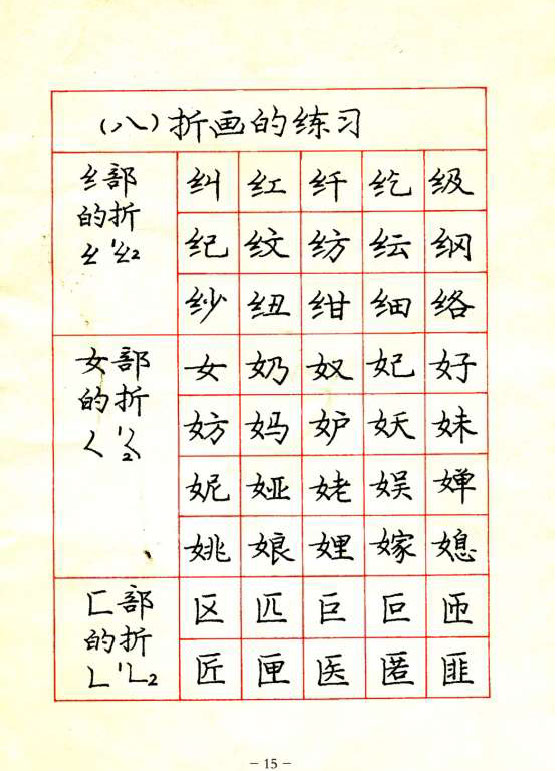 （八）折画的练习
纟部
的折
纠 红 纤 纥 级
纪 纹 纺 纭 纲
纱 纽 绀 细 络
女部
的折
女 奶 奴 妃 好
妨 妈 妒 妖 妹
妮 娅 姥 娱 婵
姚 娘 娌 嫁 媳
匚部
的折
区 匹 巨 叵 匝
匠 匣 医 匿 匪
- 15 -